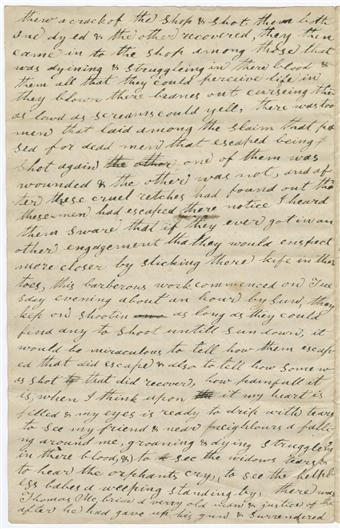 threw a crack of the Shop & Shot them both
one dyed & the other recovered, they then
came in to the Shop among those that
was dyining & Struggleing in there blood &
them all that they could perceive life in
they blown there beanes out curseing them
as loud as screams could yell, there was too
men that laid among the Slaim that pa
sed for dead men that escaped being
Shot again the other one of them was
wounded & the other was not, and af
ter these cruel retches had found out tha
these men had escaped there notice I heard
them Sware that if they ever got in an
other engagement tha they would enspect
more closer by Sticking there kife in there
toes, this barberous work commenced on Tue
sday evening about an hour by Sun, they
kep on Shootin as long as they could
find any to Shoot untill Sun down, it
would be miraculous to tell how them escap
ed that did escape & also to tell how Some w
as Shot that did recover, how painfull it
is, when I think upon it my heart is
filled & my eyes is ready to drip with tears
to See my friend & near neighbours a fall
ing around me, groaning & dying Struggleing
in there blood, & to See the widows
to hear the orphants cry, to See the helpl
ess babes a weeping Standing by, there was
Thomas Mc,brien a verry old man & justice of the
after he had gave up his gun & Surrendered